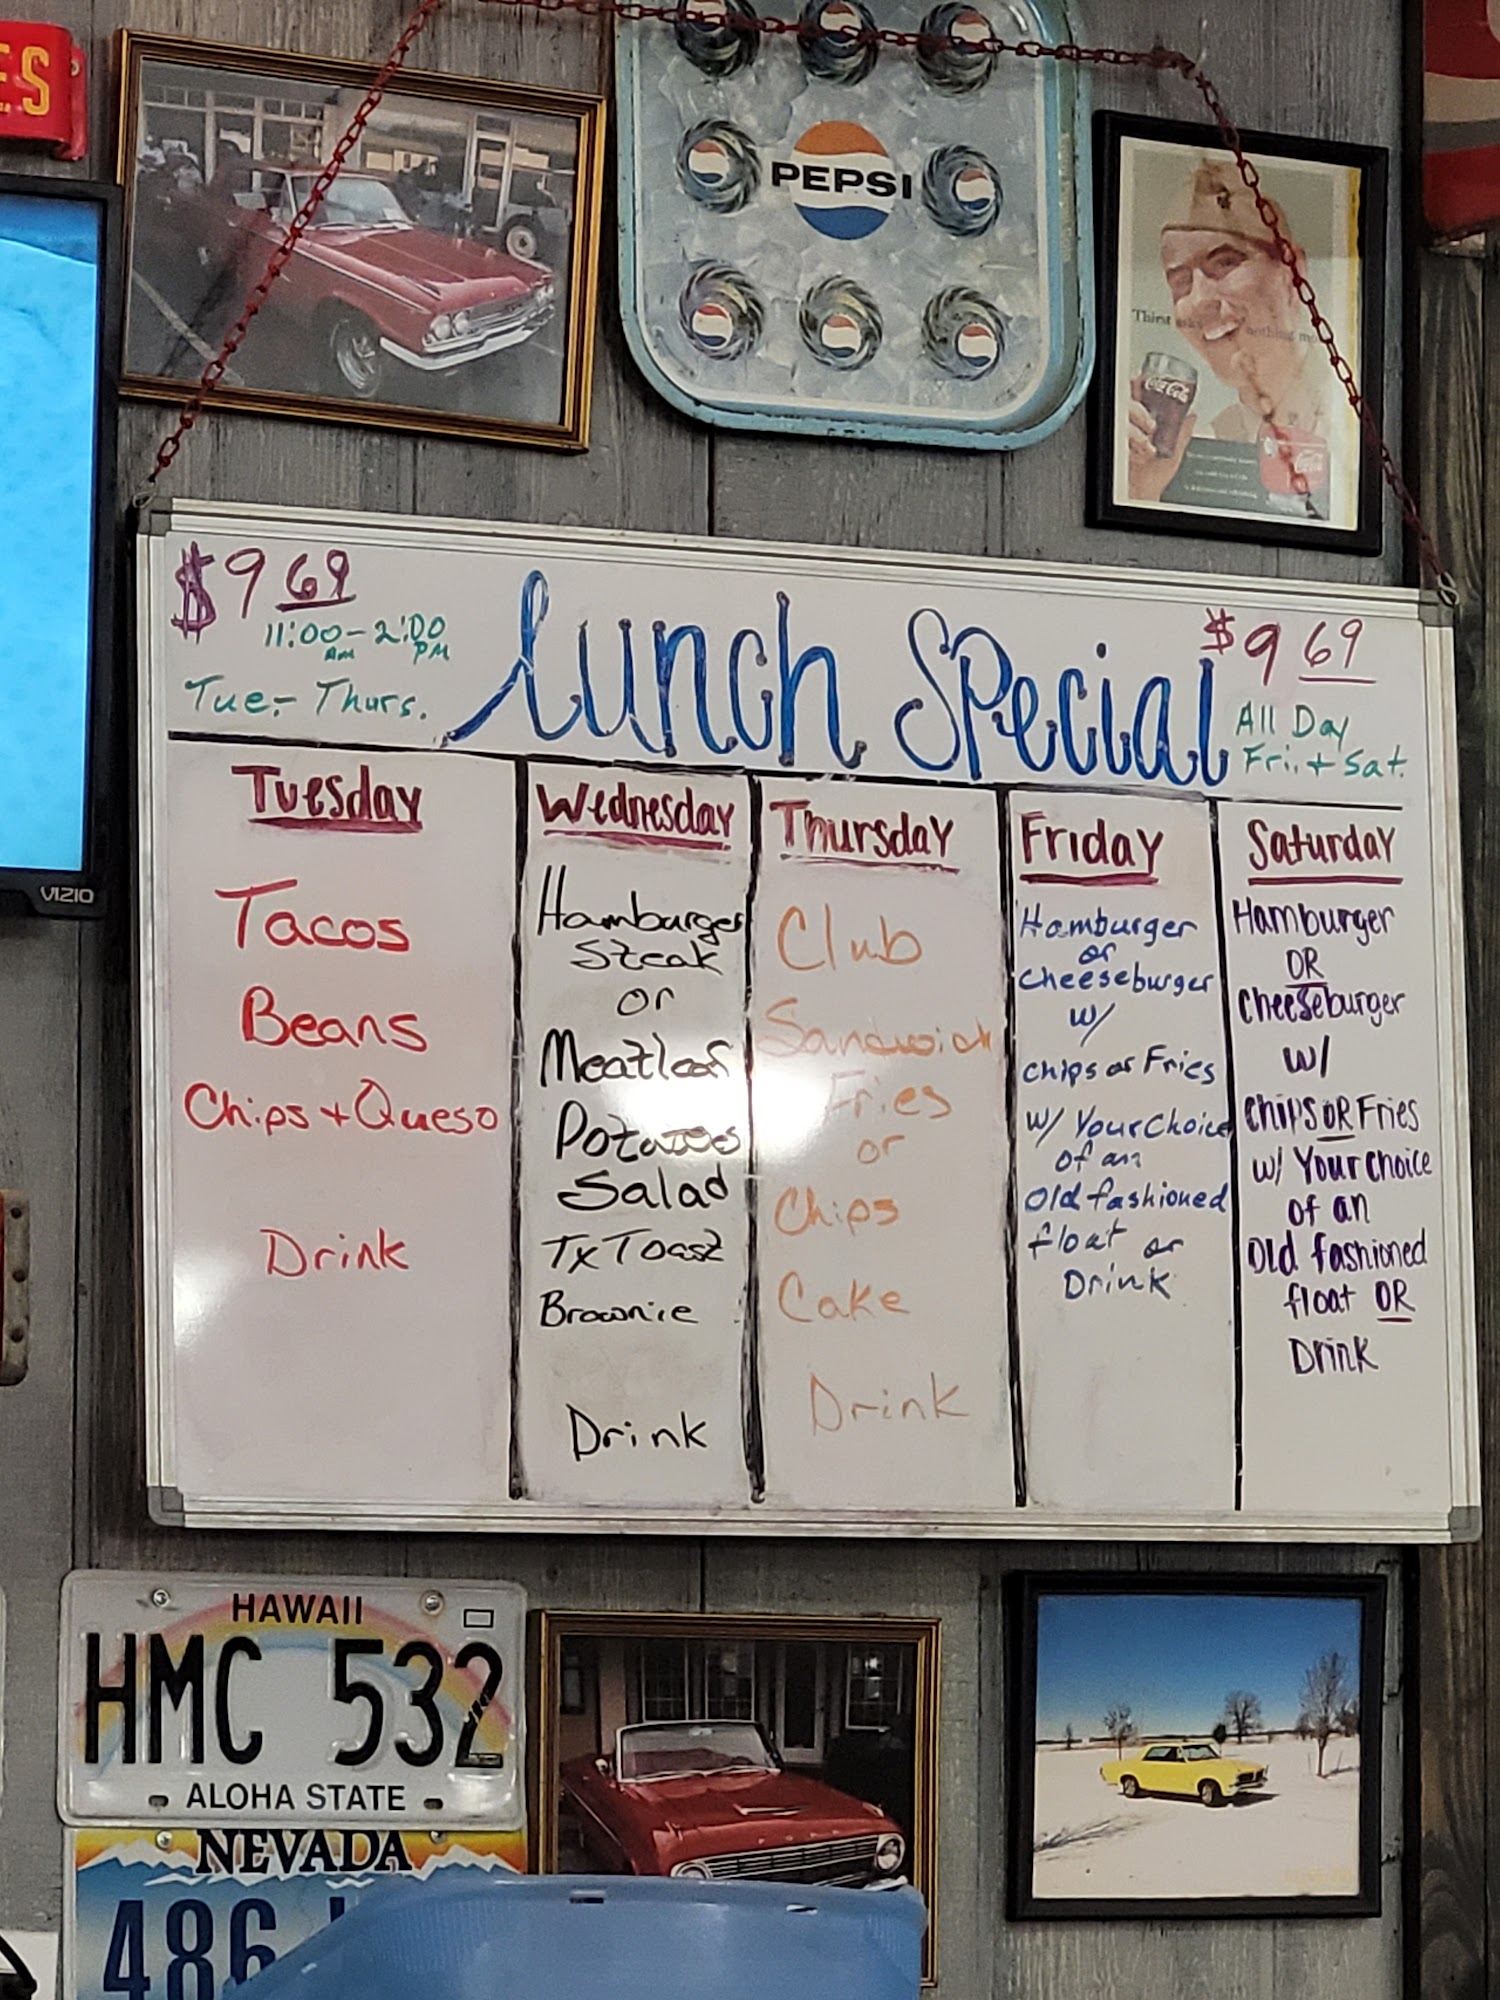 ES
PEPSI
Thirst asks nothing more
Coca-Cola
VIZIO
$9 69
11:00 - 2:00
AM PM
Tue.- Thurs.
Lunch Special
$9 69
All Day
Fri. + Sat.
Tuesday
Tacos
Beans
Chips + Queso
Drink
Wednesday
Hamburger
Steak
or
Meatloaf
Potatoes
Salad
Tx Toast
Brownie
Drink
Thursday
Club
Sandwich
Fries
or
Chips
Cake
Drink
Friday
Hamburger
or
Cheeseburger
w/
Chips or Fries
w/ Your Choice
of an
Old fashioned
float or
Drink
Saturday
Hamburger
OR
Cheeseburger
w/
Chips OR Fries
w/ Your choice
of an
Old fashioned
float OR
Drink
HAWAII
HMC 532
ALOHA STATE
NEVADA
486